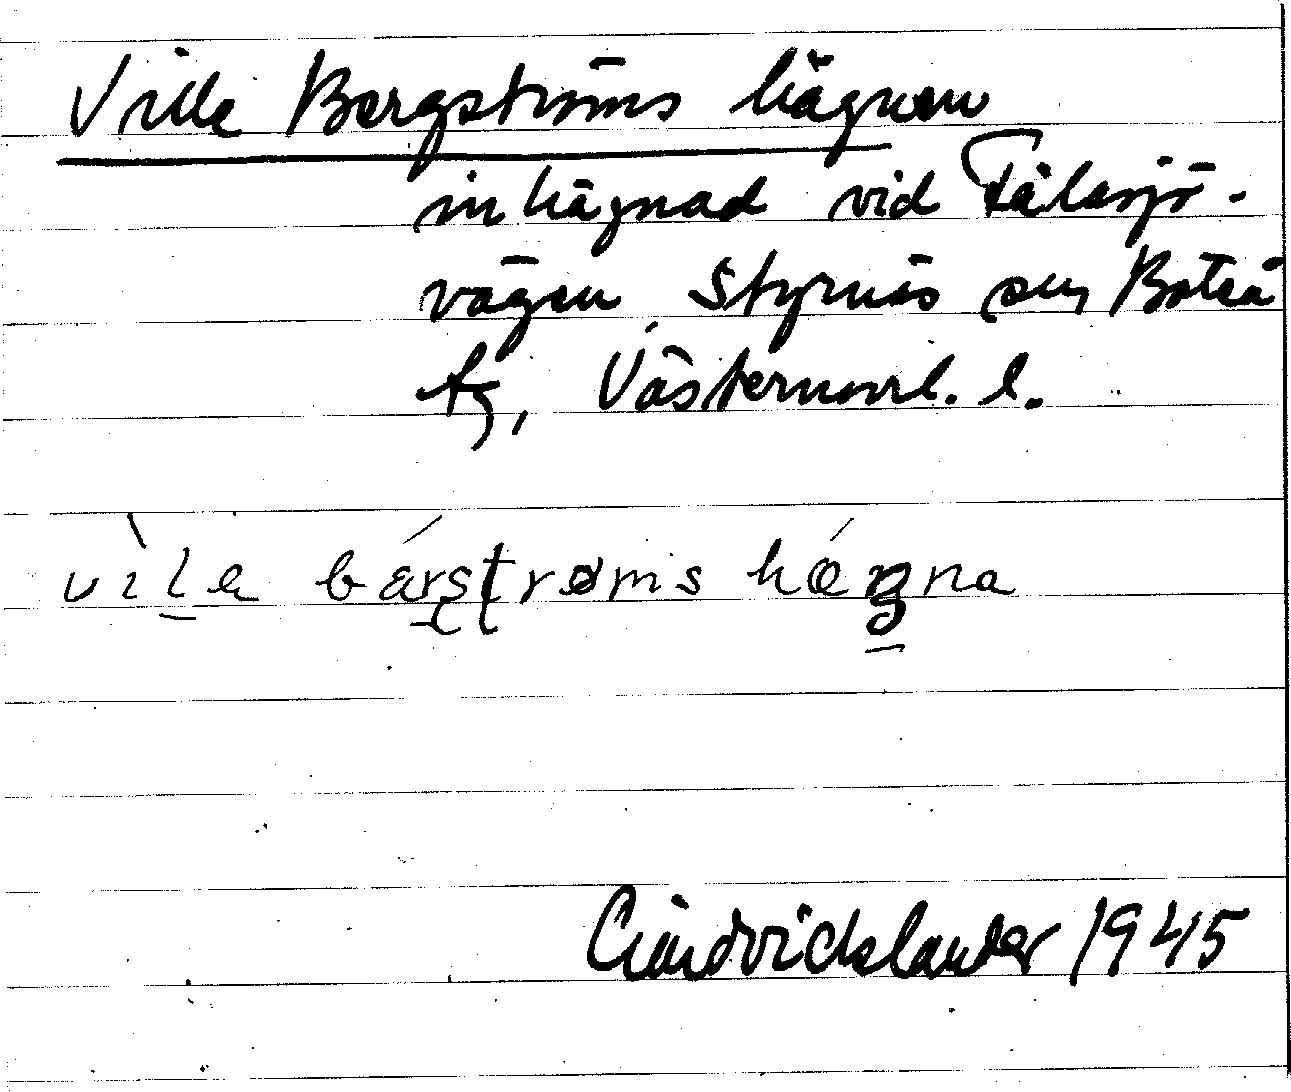 Ville Bergströms hägnen
inhägnad vid Fälasjö-
vägen Styrnäs sn, Boteå
tg, Västernorrl. l.
vìle bárstrøms hǽgna
Lindvicklander 1945